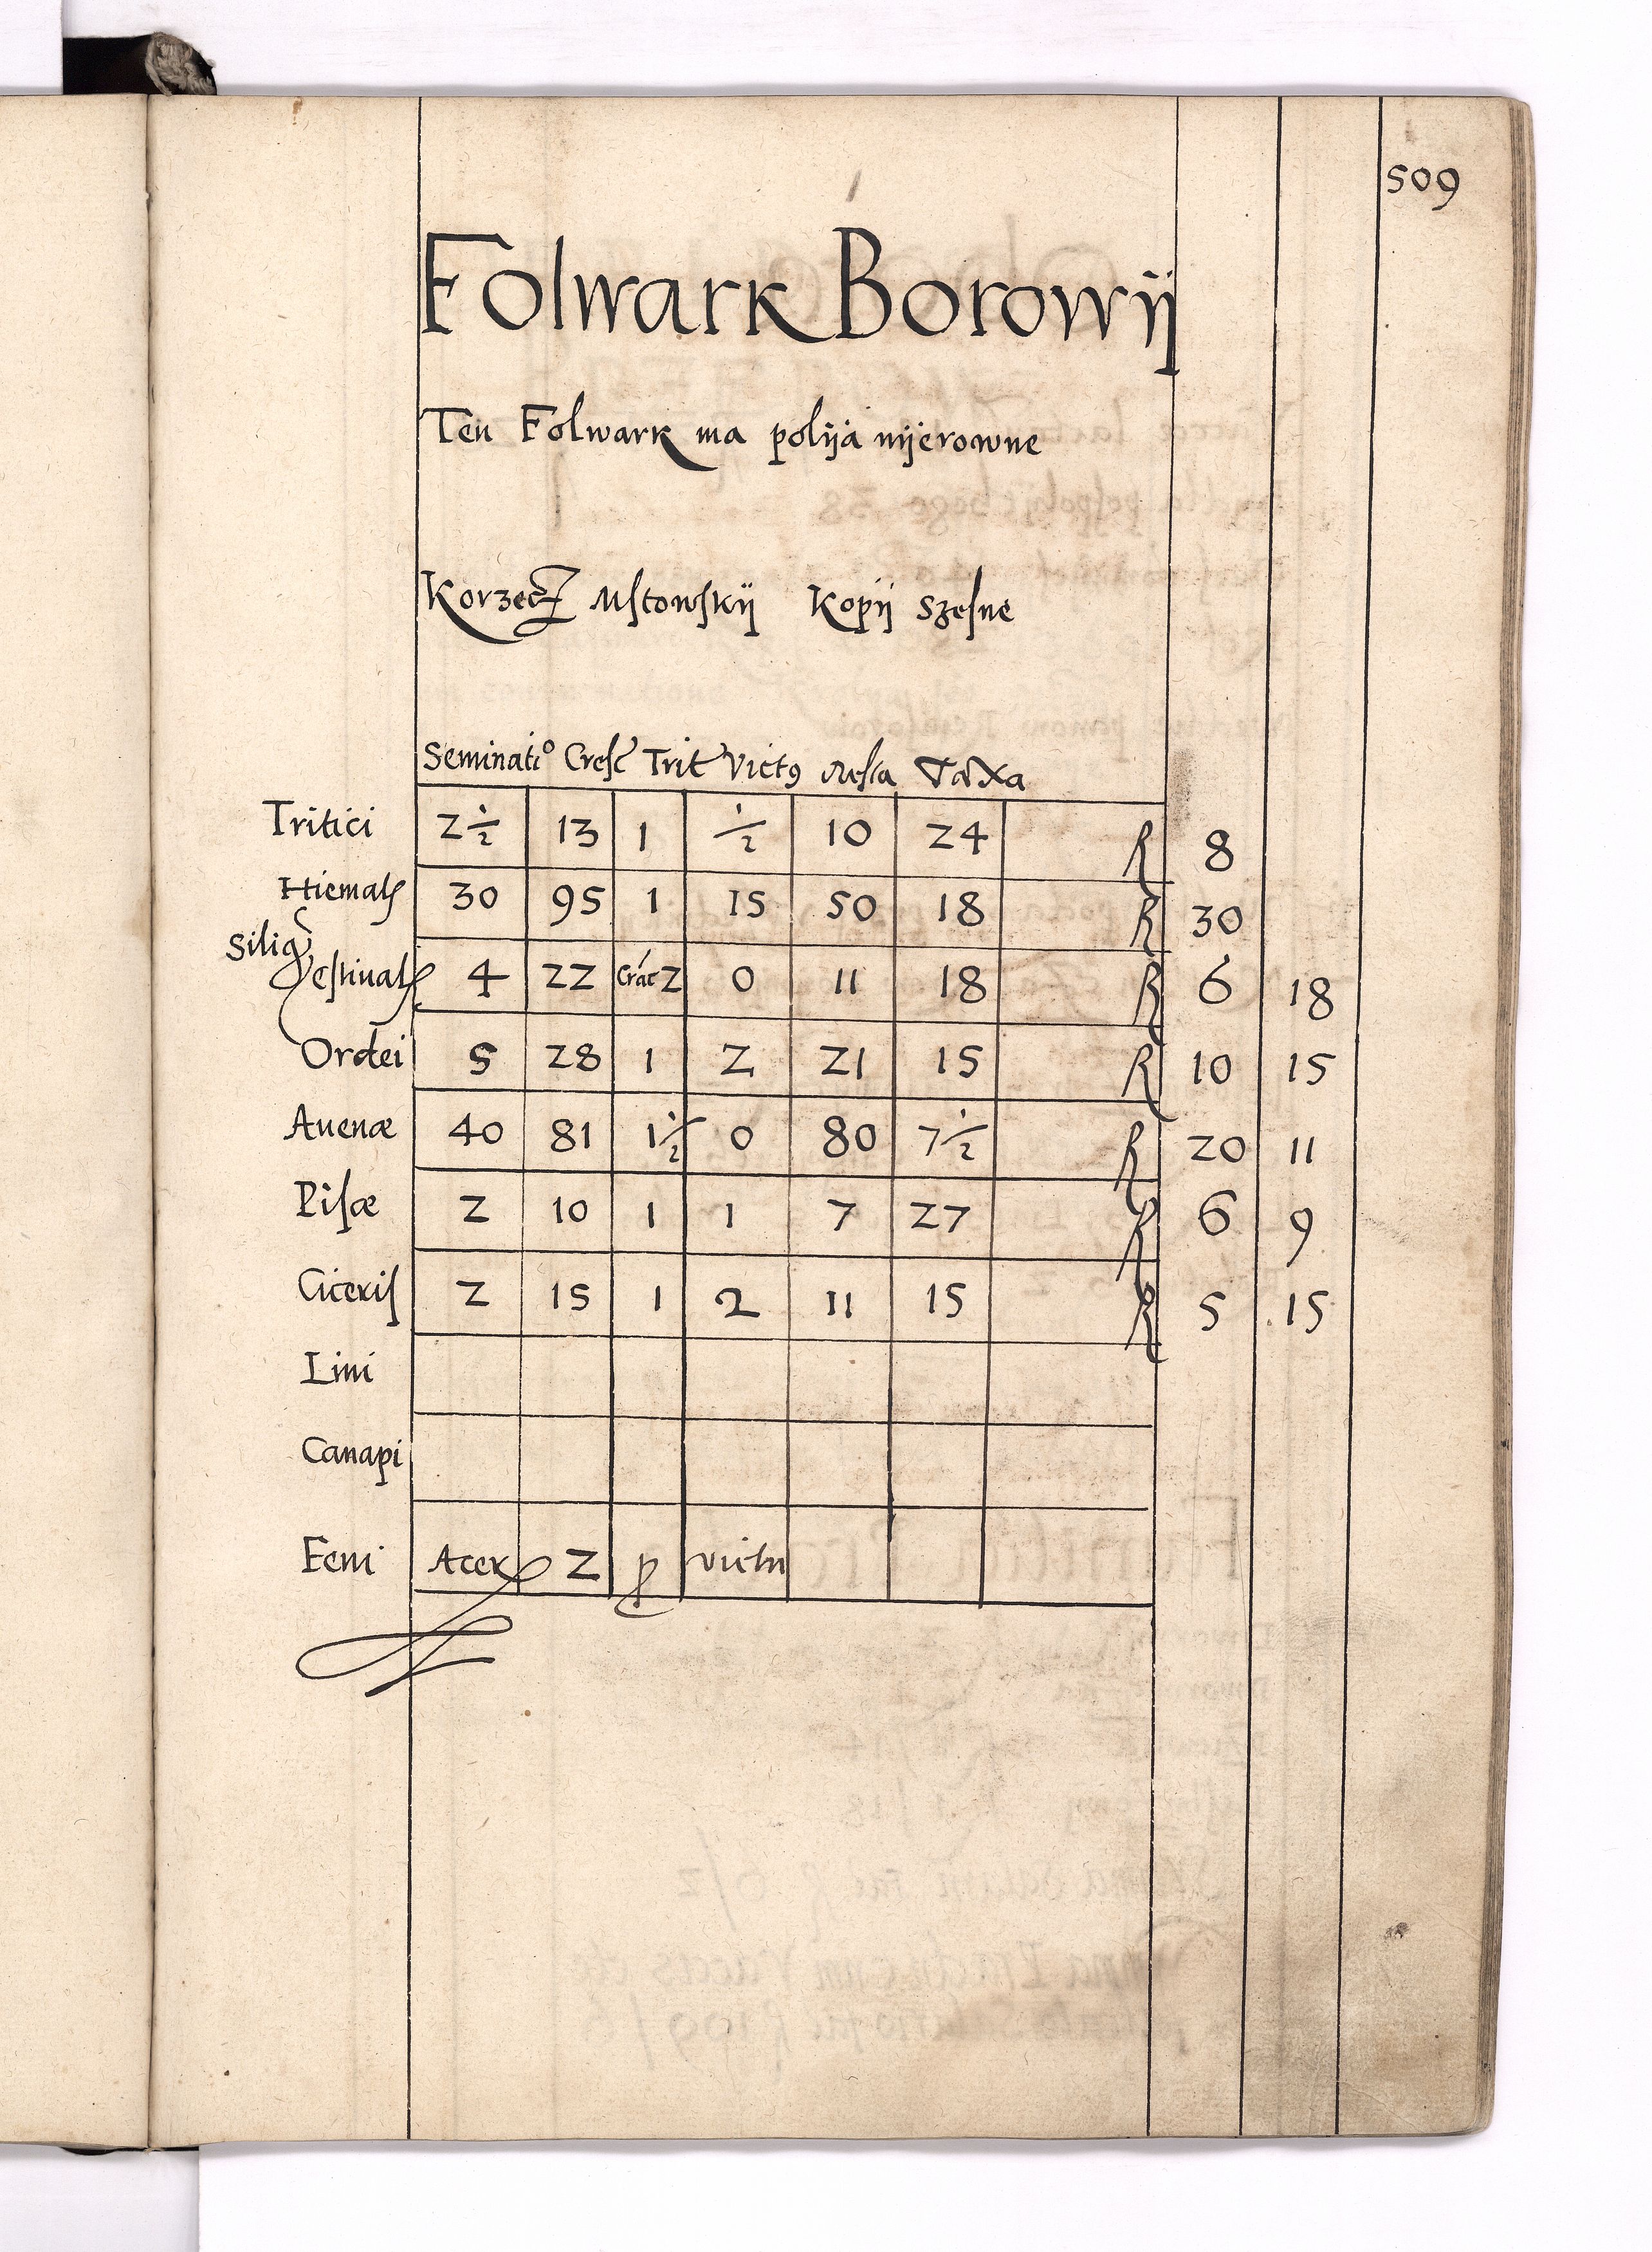 509
Folwark Borowij
Ten Folwark ma polija nijerowne
Korzecz Mstowskij Kopij Szesne
Seminatiº Cresc Trit Victꝯ Resta Taxa
Tritici 2½ 13 1 ½ 10 24 R 8
Siliგ Hiemalꝭ 30 95 1 15 50 18 R 30
estiualꝭ 4 22 Crac 2 0 11 18 R 6 18
Ordei 5 28 1 2 21 15 R 10 15
Auenæ 40 81 1½ 0 80 7½ R 20 11
Pisæ 2 10 1 1 7 27 R 6 9
Ciceris 2 15 1 2 11 15 R 5 15
Lini
Canapi
Feni Acerꝰ 2 ꝓ victu